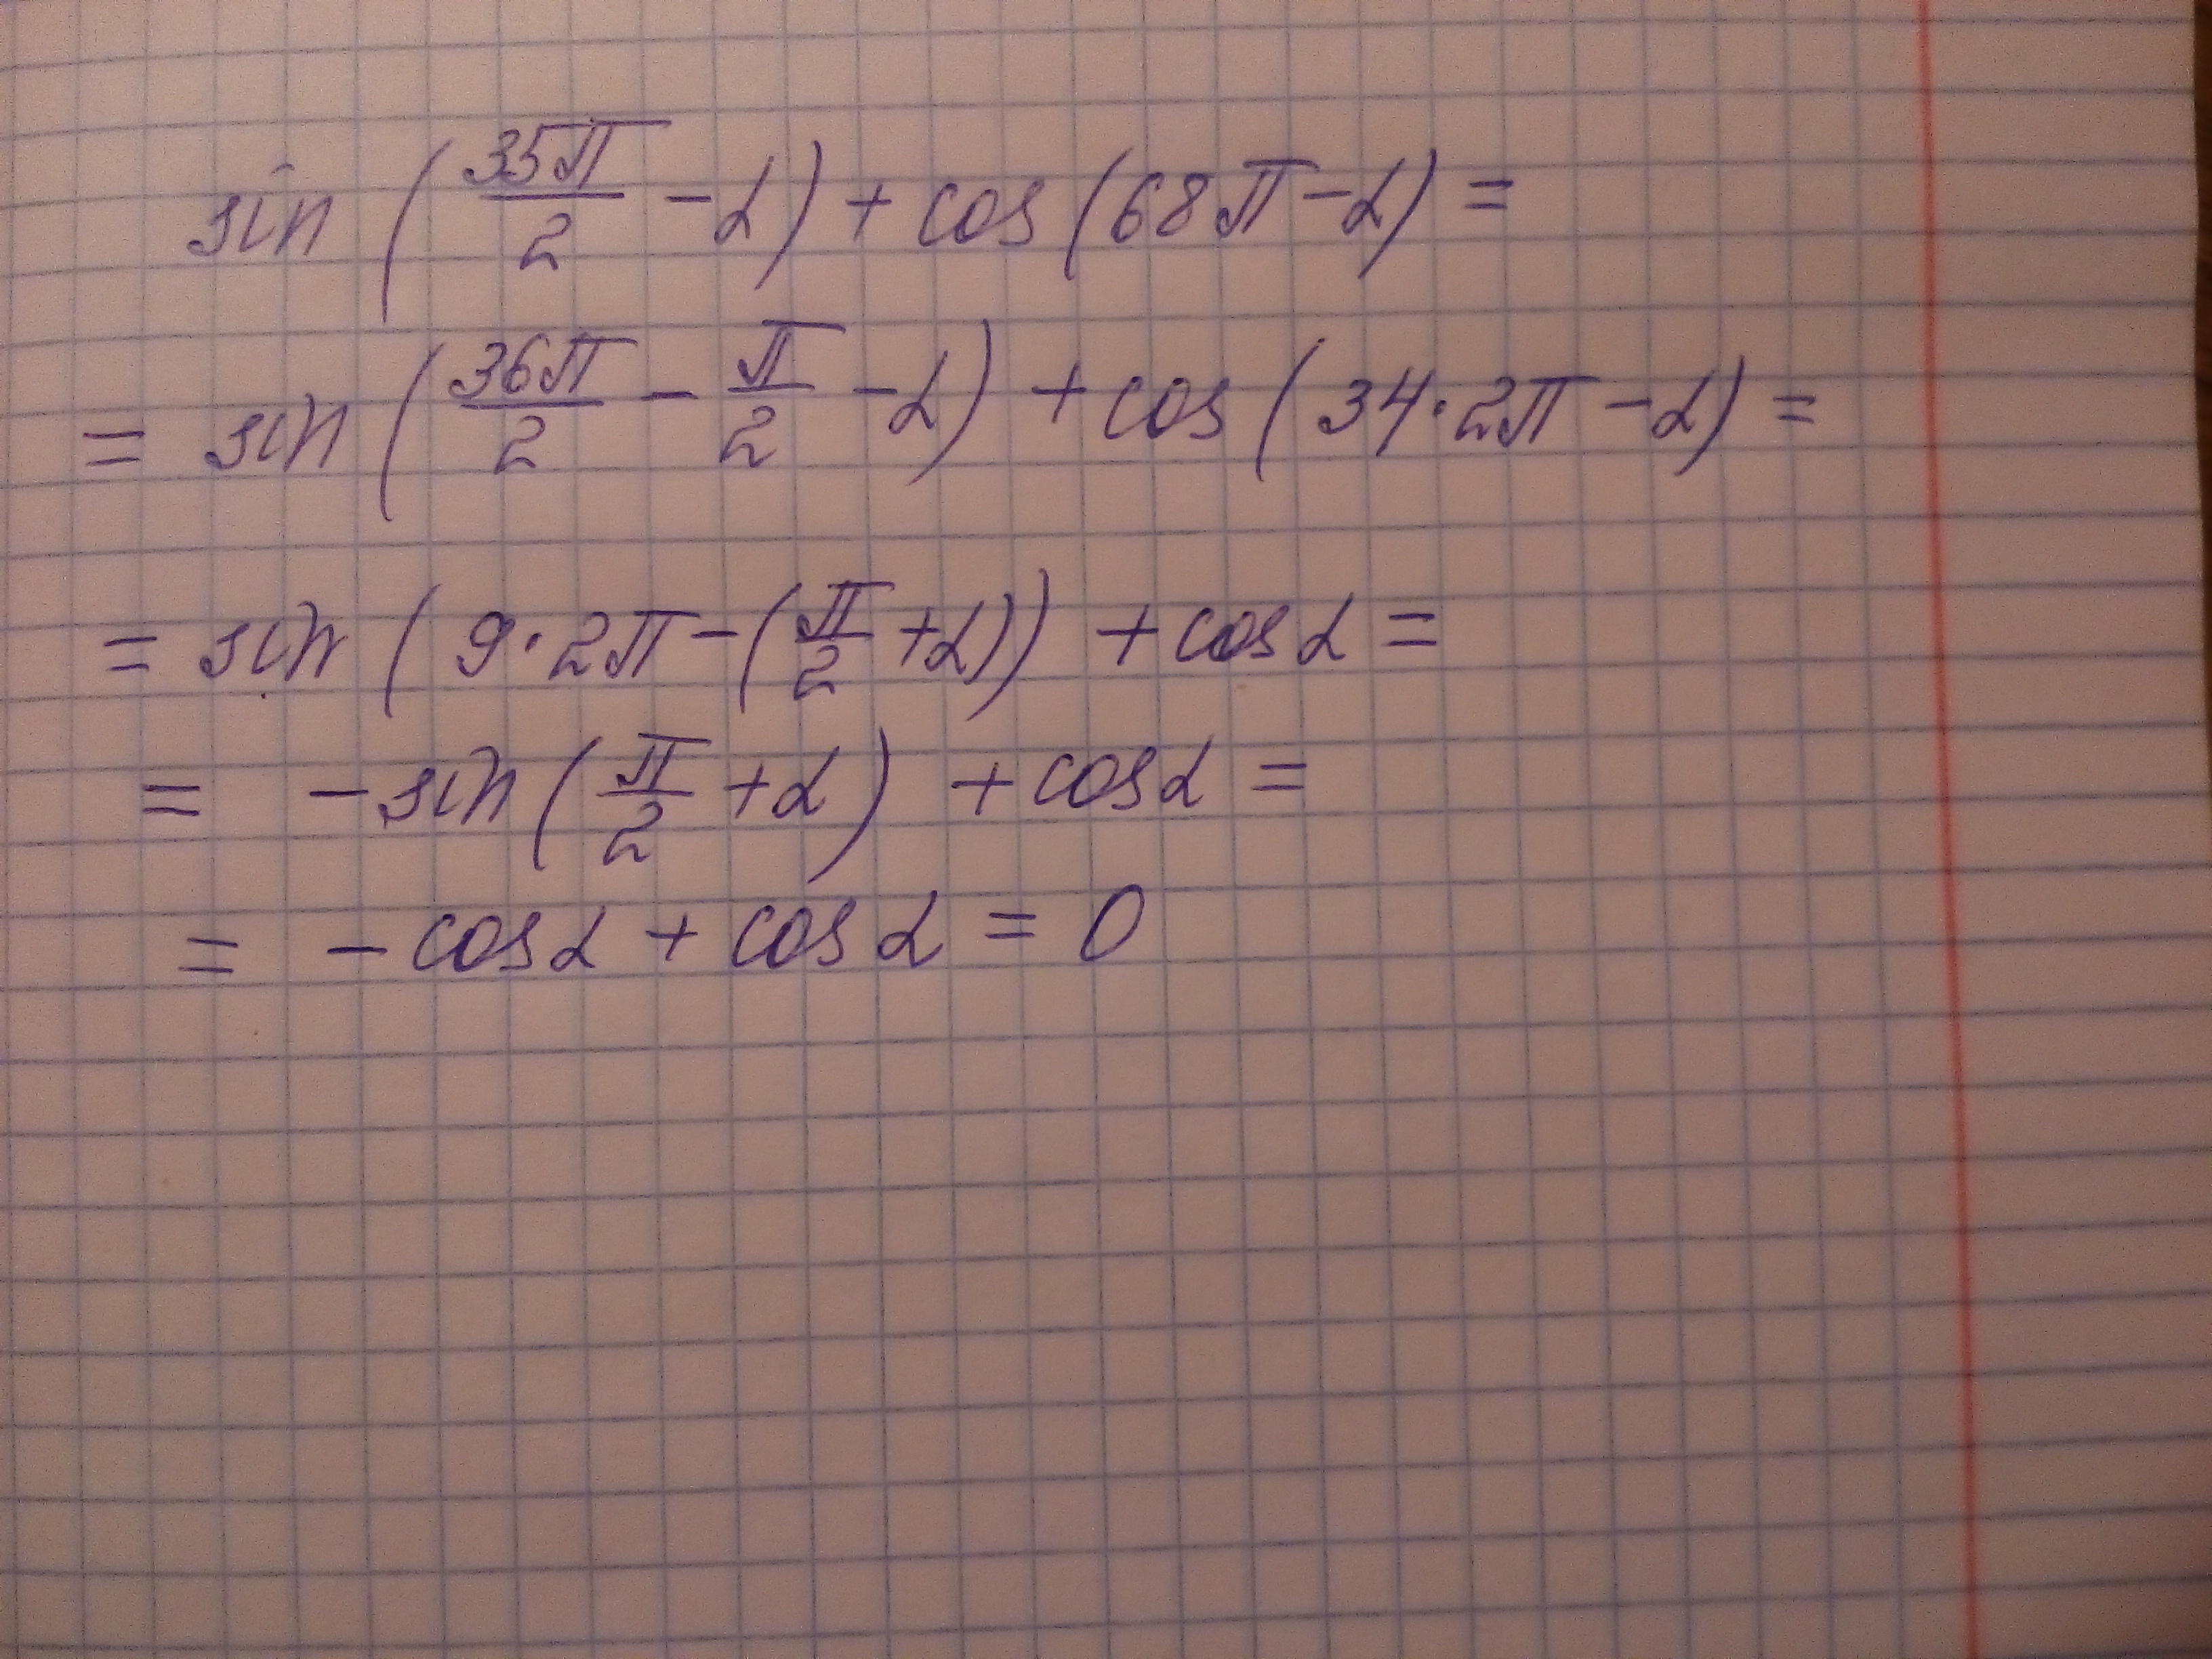 sin (35π/2 - α) + cos (68π - α) =
= sin (36π/2 - π/2 - α) + cos (34·2π - α) =
= sin (9·2π - (π/2 + α)) + cos α =
= - sin (π/2 + α) + cos α =
= - cos α + cos α = 0